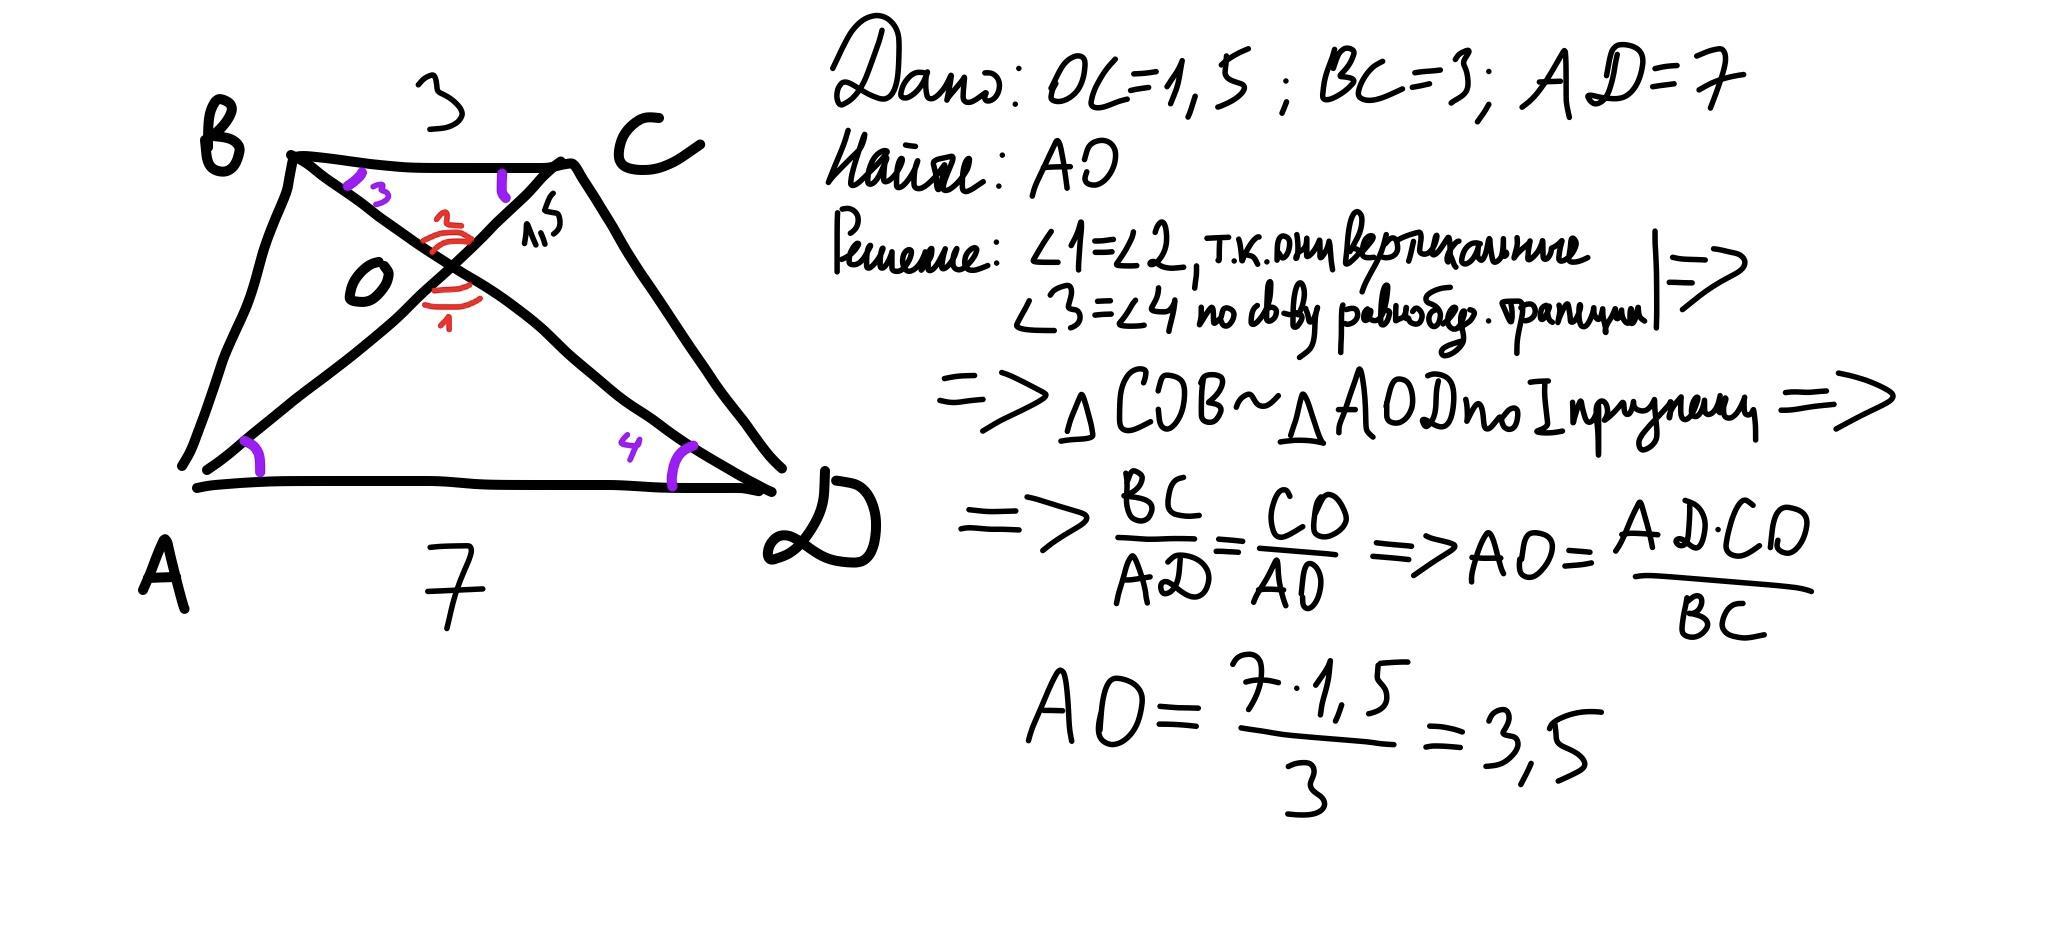 3
B
C
3
2
1,5
O
1
4
A
7
D
Дано: OC=1,5 ; BC=3; AD=7
Найти: AO
Решение: ∠1=∠2, т.к. они вертикальные
∠3=∠4 по св-ву равнобедр. трапеции | =>
=> △COB ~ △AOD по I признаку =>
=> BC/AD = CO/AO => AO = AD·CO/BC
AO = 7·1,5/3 = 3,5